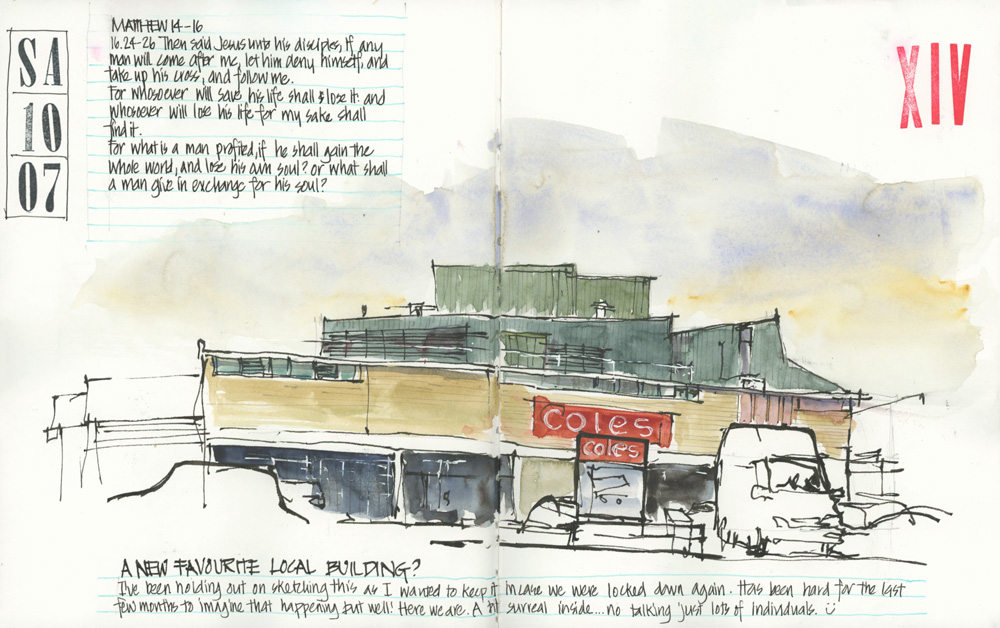 SA
10
07
MATTHEW 14-16
16.24-26 Then said Jesus unto his disciples, If any
man will come after me, let him deny himself, and
take up his cross, and follow me.
For whosoever will save his life shall lose it: and
whosoever will lose his life for my sake shall
find it.
For what is a man profited, if he shall gain the
whole world, and lose his own soul? or what shall
a man give in exchange for his soul?
XIV
coles
coles
A NEW FAVOURITE LOCAL BUILDING?
I've been holding out on sketching this as I wanted to keep it in case we were locked down again. Has been hard for the last
few months to imagine that happening but well! Here we are. A bit surreal inside... no talking just lots of individuals. :)